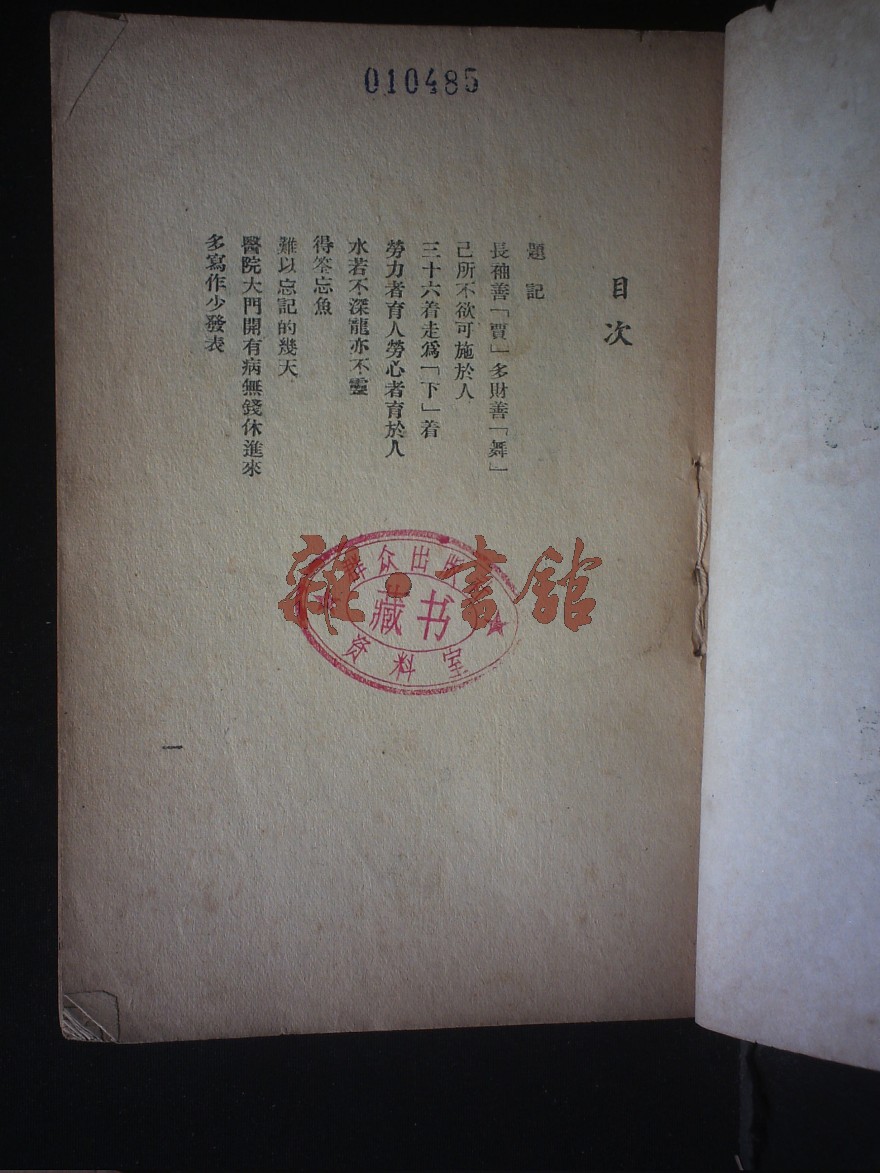 010485
目次
題記
長袖善「賈」多財善「舞」
己所不欲可施於人
三十六着走爲「下」着
勞力者育人勞心者育於人
水若不深龍亦不靈
得筌忘魚
難以忘記的幾天
醫院大門開有病無錢休進來
多寫作少發表
一
群众出版
藏书
资料室
雜·書館